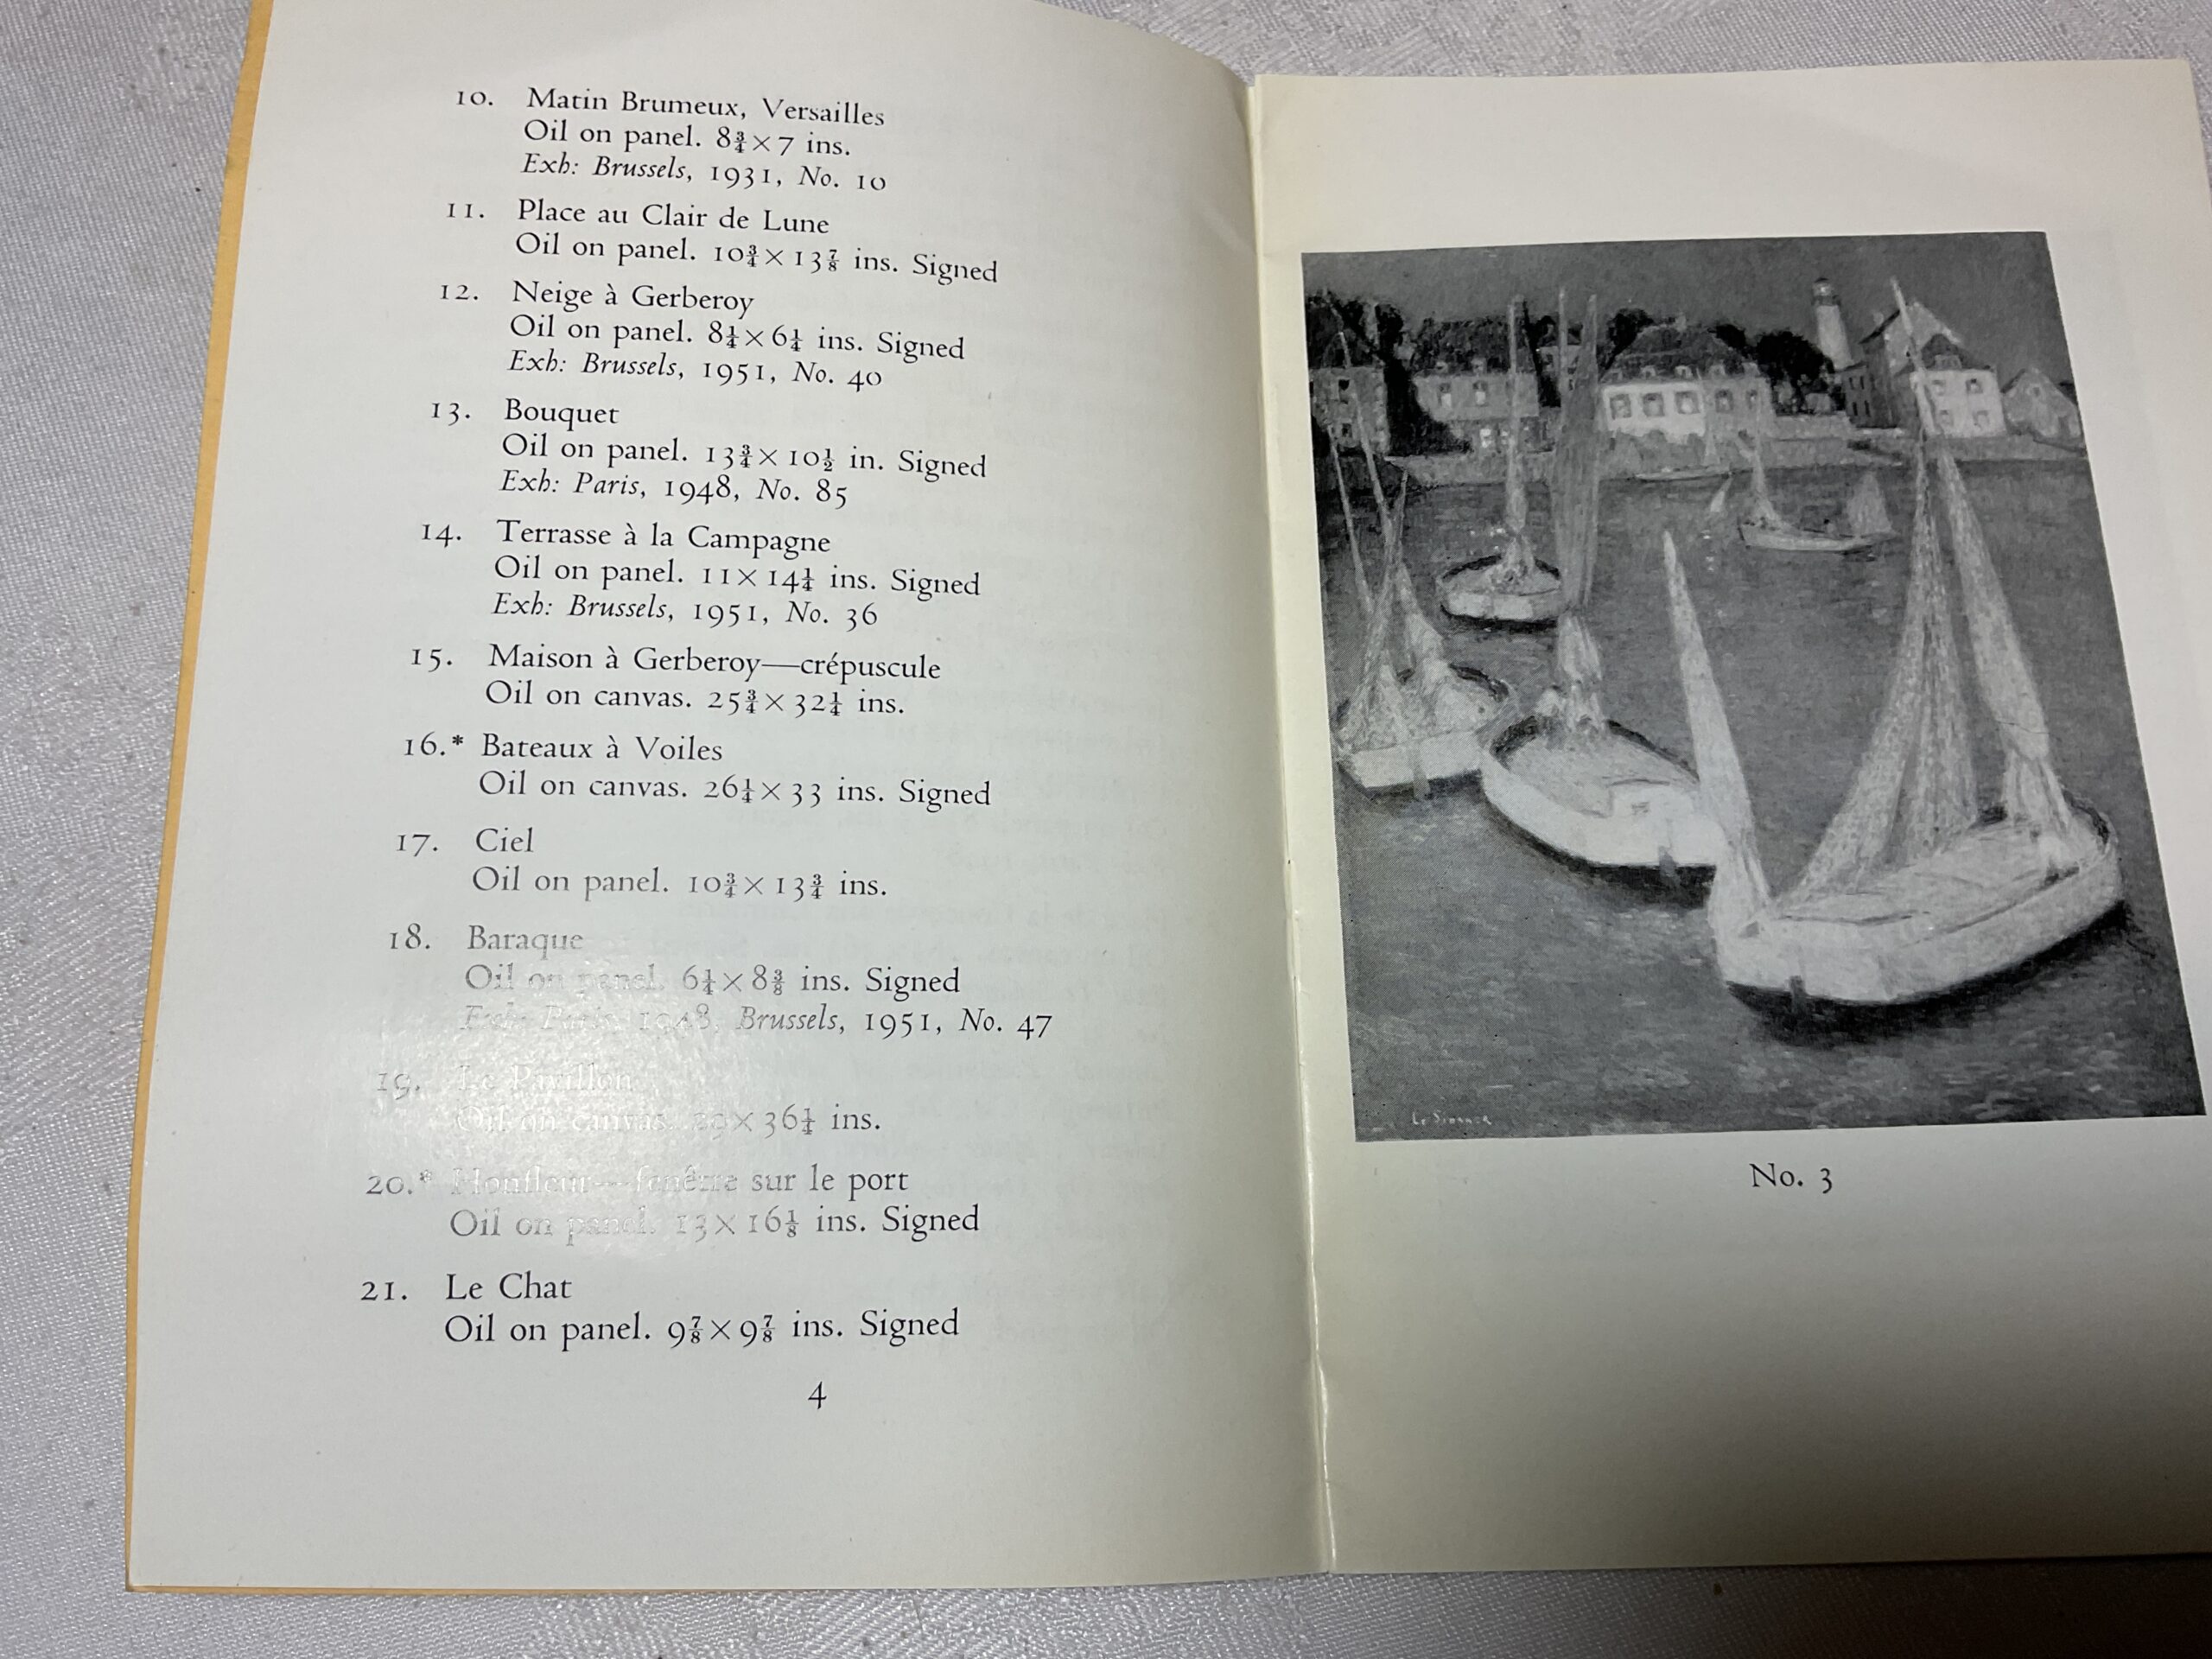 10. Matin Brumeux, Versailles
Oil on panel. 8¾×7 ins.
Exh: Brussels, 1931, No. 10
11. Place au Clair de Lune
Oil on panel. 10¾×13⅞ ins. Signed
12. Neige à Gerberoy
Oil on panel. 8¼×6¼ ins. Signed
Exh: Brussels, 1951, No. 40
13. Bouquet
Oil on panel. 13¾×10½ in. Signed
Exh: Paris, 1948, No. 85
14. Terrasse à la Campagne
Oil on panel. 11×14¼ ins. Signed
Exh: Brussels, 1951, No. 36
15. Maison à Gerberoy—crépuscule
Oil on canvas. 25¾×32¼ ins.
16.* Bateaux à Voiles
Oil on canvas. 26¼×33 ins. Signed
17. Ciel
Oil on panel. 10¾×13¾ ins.
18. Baraque
Oil on panel. 6¼×8⅜ ins. Signed
Exh: Paris, 1948, Brussels, 1951, No. 47
19. Le Pavillon
Oil on canvas. 29×36¼ ins.
20.* Honfleur—fenêtre sur le port
Oil on panel. 13×16⅛ ins. Signed
21. Le Chat
Oil on panel. 9⅞×9⅞ ins. Signed
4
Le Sidaner
No. 3